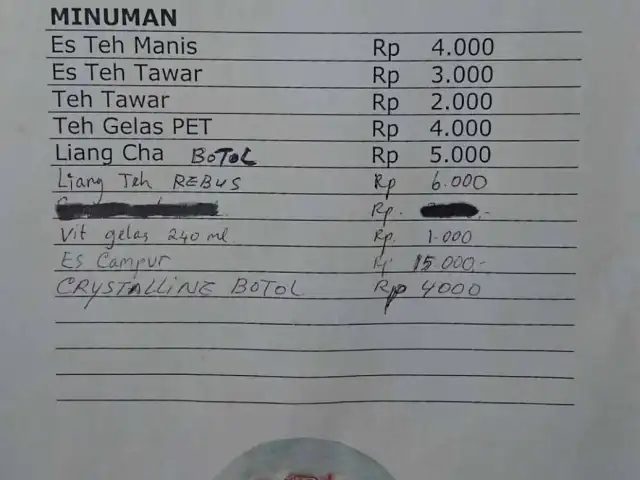 MINUMAN
Es Teh Manis Rp 4.000
Es Teh Tawar Rp 3.000
Teh Tawar Rp 2.000
Teh Gelas PET Rp 4.000
Liang Cha BOTOL Rp 5.000
Liang Teh REBUS Rp 6.000
Rp.
Vit gelas 240 ml. Rp. 1.000
Es Campur Rp 15.000,-
CRYSTALLINE BOTOL Rp 4000